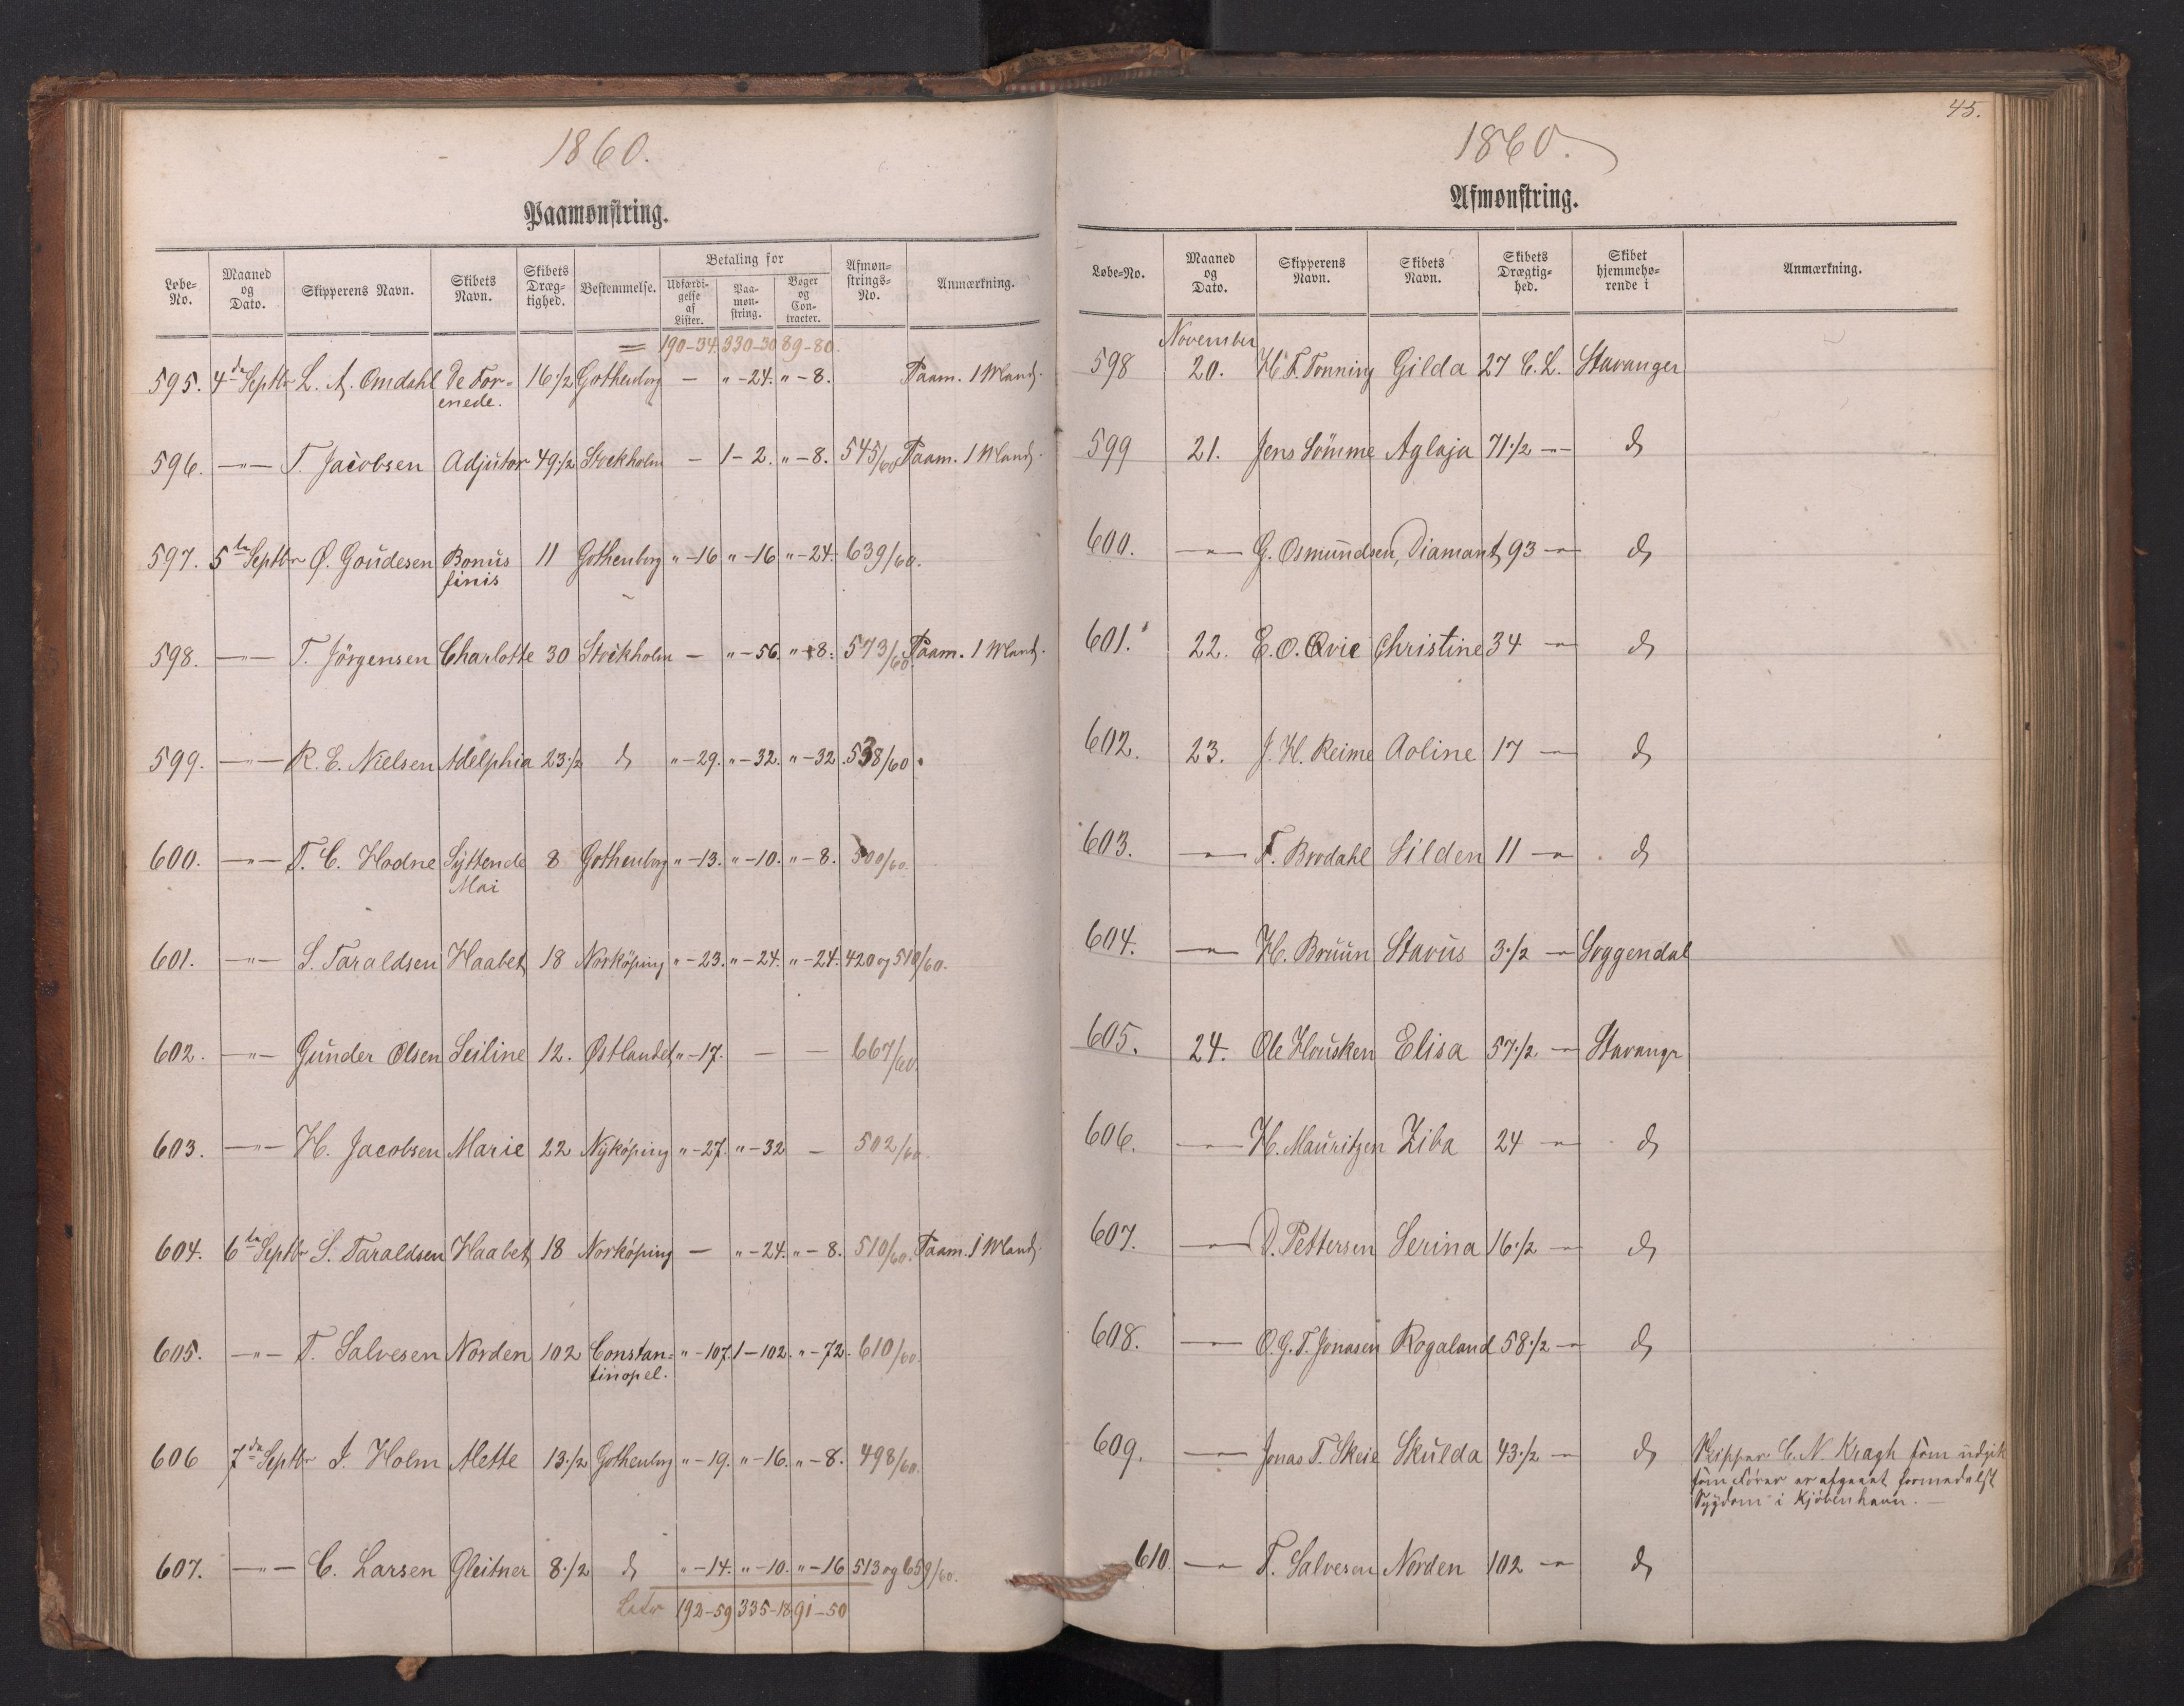 1860.
Paamønstring.
Løbe-No. Maaned og Dato. Skipperens Navn. Skibets Navn. Skibets Dræg-tighed. Bestemmelse. Betaling for Udfærdi-gelse af Lister. Paa-møn-string. Bøger og Con-tracter. Afmøn-strings-No. Anmærkning.
= 190-34. 330-30 89-80.
595. 4de Septbr L. A. Omdahl De For- 16 1/2 Gothenborg — " -24. " -8. Paam. 1 Mand.
enede.
596. —"— T. Jacobsen Adjutor 49 1/2 Stokholm — 1-2. " -8. 545/60 Paam. 1 Mand.
597. 5te Septbr Ø. Goudesen Bonus 11 Gothenborg " -16 " -16 " -24. 639/60.
finis
598. —"— T. Jörgensen Charlotte 30 Stokholm — " -56. " -8. 573/60 Paam. 1 Mand.
599. —"— R. E. Nielsen Adelphia 23 1/2 do " -29. " -32. " -32. 538/60.
600. —"— T. C. Hodne Syttende 8 Gothenborg " -13. " -10. " -8. 500/60.
Mai
601. —"— S. Taraldsen Haabet 18 Norköping " -23. " -24. " -24. 420 og 510/60.
602. —"— Gunder Olsen Seiline 12. Østlandet " -17. — — 667/60.
603. —"— H. Jacobsen Marie 22 Nyköping " -27. " -32 — 502/60.
604. 6te Septbr S. Taraldsen Haabet 18 Norköping — " -24. " -8. 510/60. Paam. 1 Mand.
605. —"— T. Salvesen Norden 102 Constan- " -107. 1-102. " -72. 610/60.
tinopel.
606 7de Septbr I. Holm Mette 13 1/2 Gothenborg " -19. " -16. " -8. 498/60.
607. —"— C. Larsen Gleitner 8 1/2 do " -14. " -10. " -16 513 og 659/60.
Latr 192-59 335-18 91-50
45.
1860.
Afmønstring.
Løbe-No. Maaned og Dato. Skipperens Navn. Skibets Navn. Skibets Drægtig-hed. Skibet hjemmehø-rende i Anmærkning.
November
598 20. H. F. Tonning Gilda 27 C. L. Stavanger
599 21. Jens Sömme Aglaja 71 1/2 —"— do
600. —"— G. Osmundsen, Diamant 93 —"— do
601. 22. E. O. Qvie Christine 34 —"— do
602. 23. J. H. Reime Aoline 17 —"— do
603. —"— F. Brodahl Silden 11 —"— do
604. —"— H. Bruun Stavus 3 1/2 —"— Soggendal
605. 24. Ole Housken Elisa 57 1/2 —"— Stavangr
606. —"— H. Mauritzen Ziba 24 —"— do
607. —"— D. Pettersen Serina 16 1/2 —"— do
608. —"— O. G. T. Jonasen Rogaland 58 1/2 —"— do
609. —"— Jonas T. Skeie Skulda 43 1/2 —"— do Skipper C. N. Kragh som udgik
som Fører er afgaaet formedelst
Sygdom i Kjöbenhavn. —
610. —"— T. Salvesen Norden 102 —"— do